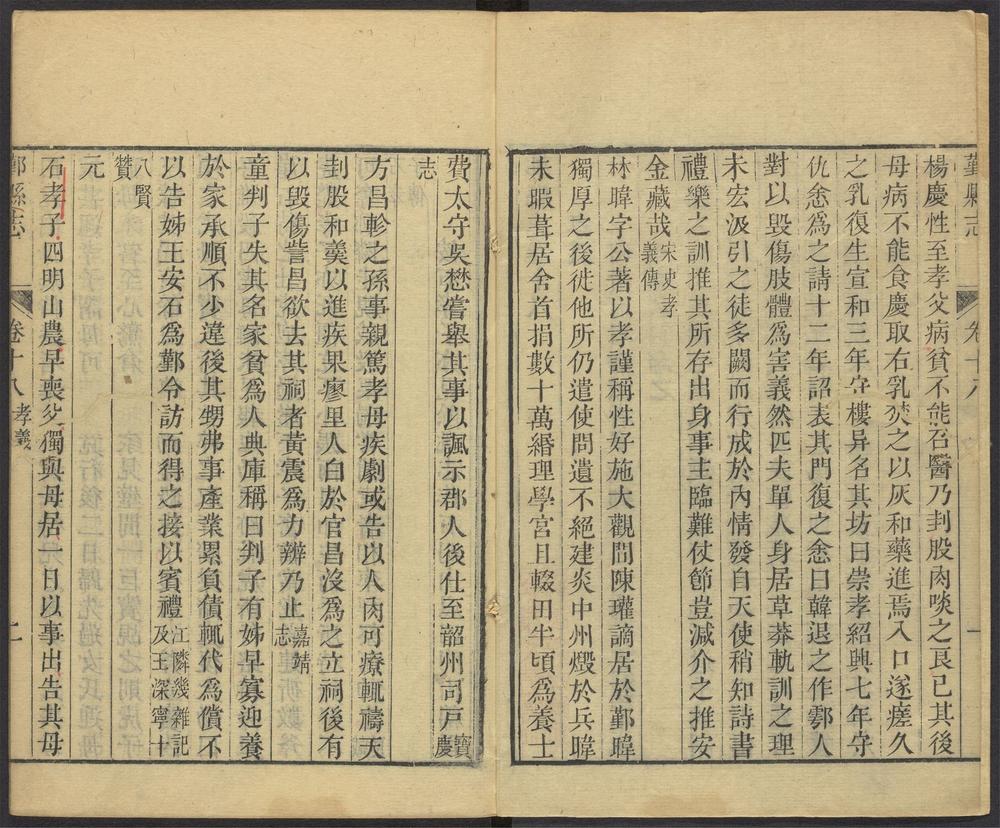 鄞縣志
卷十八
一
楊慶性至孝父病貧不能召醫乃刲股肉啖之良已其後
母病不能食慶取右乳焚之以灰和藥進焉入口遂瘥久
之乳復生宣和三年守樓异名其坊曰崇孝紹興七年守
仇悆爲之請十二年詔表其門復之悆曰韓退之作鄠人
對以毀傷肢體爲害義然匹夫單人身居草莽軌訓之理
未宏汲引之徒多闕而行成於內情發自天使稍知詩書
禮樂之訓推其所存出身事主臨難仗節豈減介之推安
金藏哉宋史孝
義傳
林暐字公著以孝謹稱性好施大觀間陳瓘謫居於鄞暐
獨厚之後徙他所仍遣使問遺不絕建炎中州燬於兵暐
未暇葺居舍首捐數十萬緡理學宮且輟田半頃爲養士
費太守吳懋嘗舉其事以諷示郡人後仕至韶州司戸寶
慶
志
方昌軫之孫事親篤孝母疾劇或告以人肉可療輒禱天
刲股和羹以進疾果瘳里人白於官昌沒爲之立祠後有
以毀傷訾昌欲去其祠者黃震爲力辨乃止嘉靖
志
童判子失其名家貧爲人典庫稱曰判子有姊早寡迎養
於家承順不少違後其甥弗事產業累負債輒代爲償不
以告姊王安石爲鄞令訪而得之接以賓禮江隣幾雜記
及王深寧十
八賢
贊
元
石孝子四明山農早喪父獨與母居一日以事出告其母
鄞縣志
卷十八孝義
二